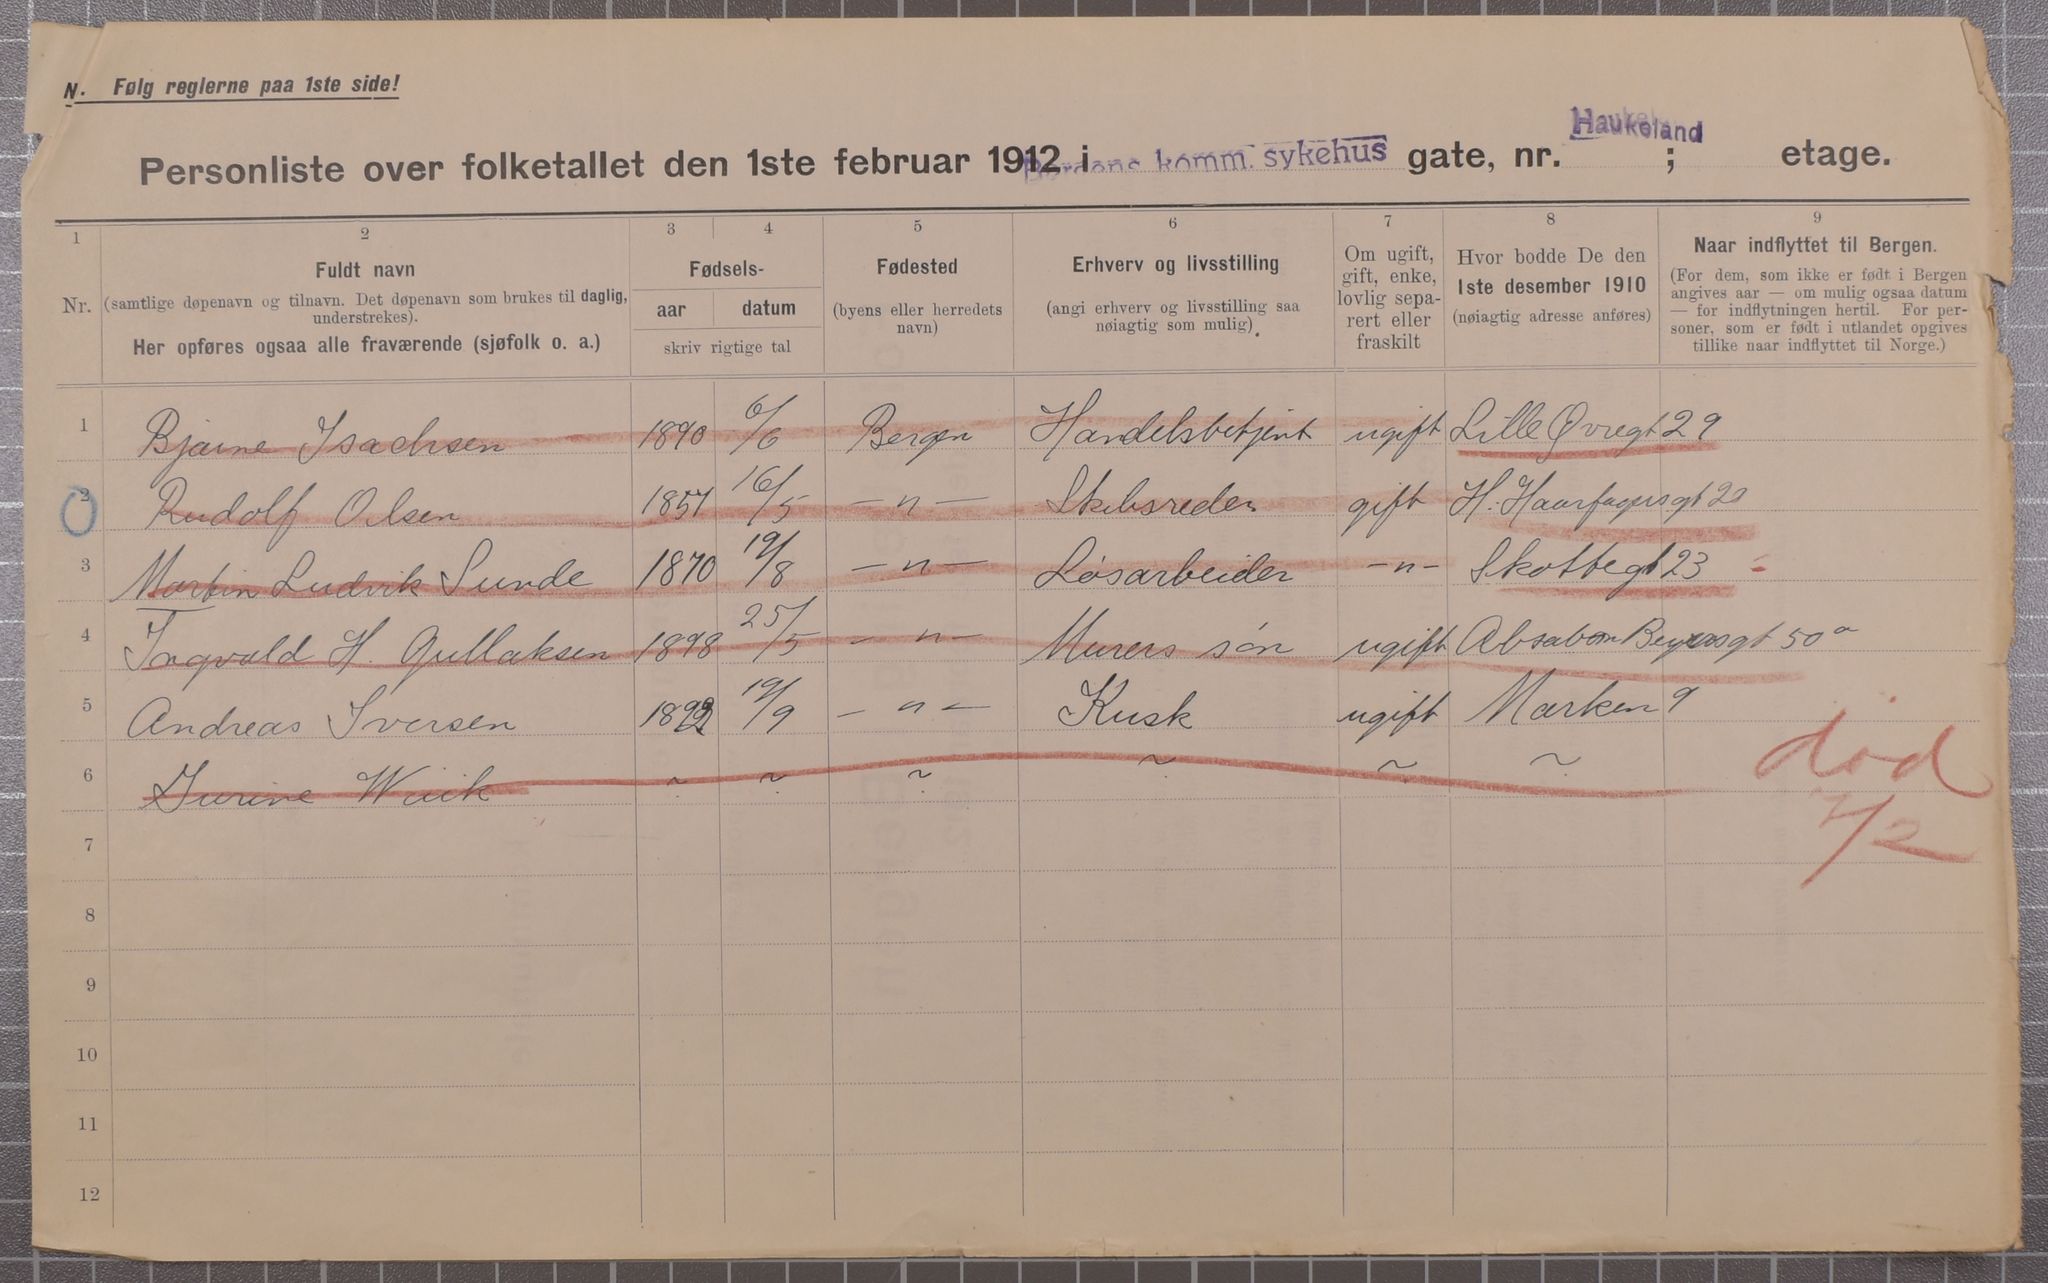 N. Følg reglerne paa 1ste side!
Haukeland
Personliste over folketallet den 1ste februar 1912 i Bergens komm. sykehus gate, nr. ; etage.
1 2 3 4 5 6 7 8 9
Nr.
Fuldt navn
(samtlige døpenavn og tilnavn. Det døpenavn som brukes til daglig,
understrekes).
Her opføres ogsaa alle fraværende (sjøfolk o. a.)
Fødsels-
aar datum
skriv rigtige tal
Fødested
(byens eller herredets
navn)
Erhverv og livsstilling
(angi erhverv og livsstilling saa
nøiagtig som mulig).
Om ugift,
gift, enke,
lovlig sepa-
rert eller
fraskilt
Hvor bodde De den
1ste desember 1910
(nøiagtig adresse anføres)
Naar indflyttet til Bergen.
(For dem, som ikke er født i Bergen
angives aar — om mulig ogsaa datum
— for indflytningen hertil. For per-
soner, som er født i utlandet opgives
tillike naar indflyttet til Norge.)
1 Bjarne Isachsen 1890 6/6 Bergen Handelsbetjent ugift Lille Øvregt 29
2 Rudolf Olsen 1857 16/5 —n— Skibsreder gift H. Haarfagersgt 20
3 Martin Ludvik Sunde 1870 19/8 —n— Løsarbeider —n— Skottegt 23
4 Ingvald H. Gullaksen 1898 25/5 —n— Murers søn ugift Absalon Beyersgt 50a
5 Andreas Iversen 1892 19/9 —n— Kusk ugift Marken 9
6 Jurine Wiik ~ ~ ~ ~ ~ ~
død
2/2
7
8
9
10
11
12